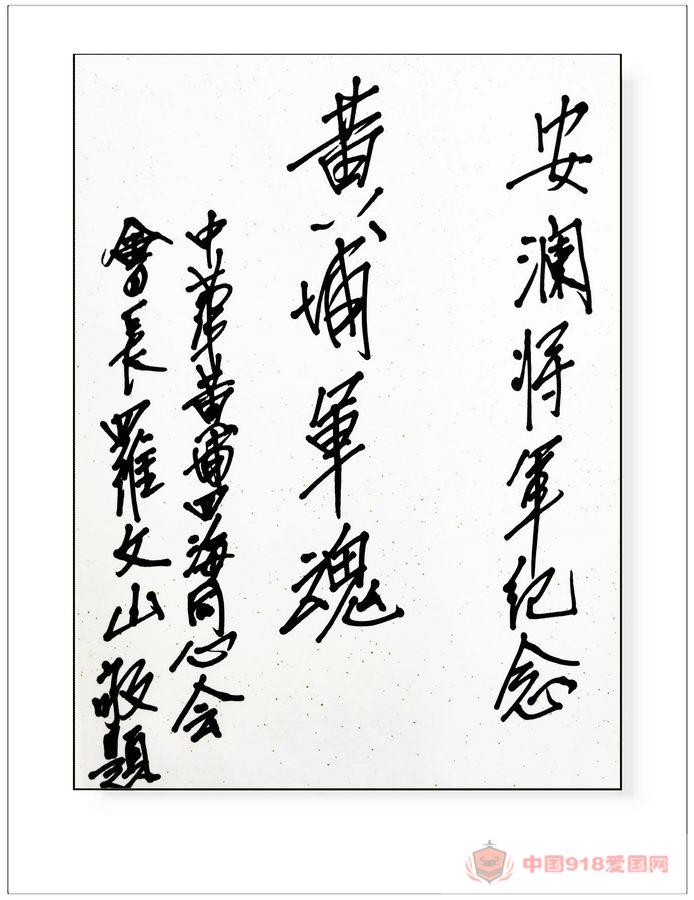 安澜将軍纪念
黄埔軍魂
中華黄埔四海同心会
會長羅文山敬題
中国918爱国网